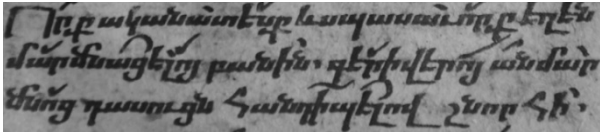 Որք ականատեսք և սպասաւորք եղեն
մարմնացելոյ բանին. գերիվերոյ անմար
մնոց դասուցն հանդիպելով շնոր հին.